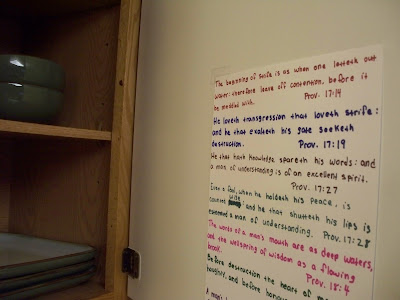 The beginning of strife is as when one letteth out
water: therefore leave off contention, before it
be meddled with. Prov. 17:14
He loveth transgression that loveth strife:
and he that exalteth his gate seeketh
destruction. Prov. 17:19
He that hath knowledge spareth his words: and
a man of understanding is of an excellent spirit.
Prov. 17:27
Even a fool, when he holdeth his peace, is
counted wise and he that shutteth his lips is
esteemed a man of understanding. Prov. 17:28
The words of a man's mouth are as deep waters,
and the wellspring of wisdom as a flowing
brook. Prov. 18:4
Before destruction the heart of
haughty, and before honour
A man's